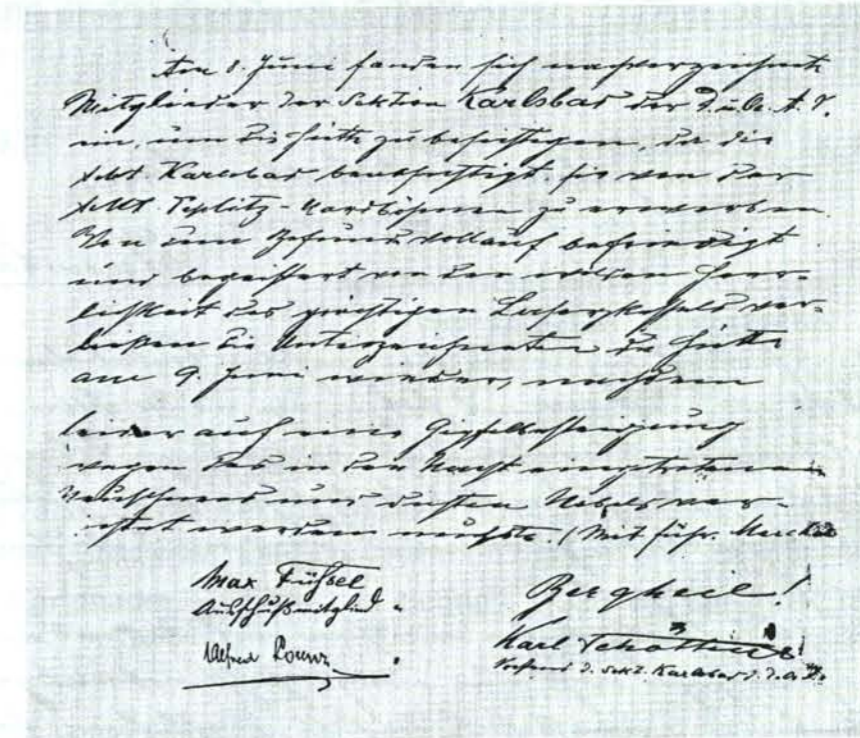 Am 8. Juni fanden sich nachverzeichnete
Mitglieder der Sektion Karlsbad des D. u. Oe. A. V.
ein, um die Hütte zu besichtigen, da die
Sekt. Karlsbad beabsichtigt, sie von der
Sekt. Teplitz-Nordböhmen zu erwerben.
Von dem Befunde vollauf befriedigt
und begeistert von der wilden Herr-
lichkeit des prächtigen Laserzkessels ver-
ließen die Unterzeichneten die Hütte
am 9. Juni wieder, nachdem
leider auf eine Gipfelbesteigung
wegen des in der Nacht eingetretenen
Neuschnees und dichten Nebels ver-
zichtet werden mußte. (Mit Führ.
Max Füssel
Ausschußmitglied
Alfred Lorenz
Bergheil!
Karl
Vorstand d. Sekt. Karlsbad d. D. Oe. A. V.